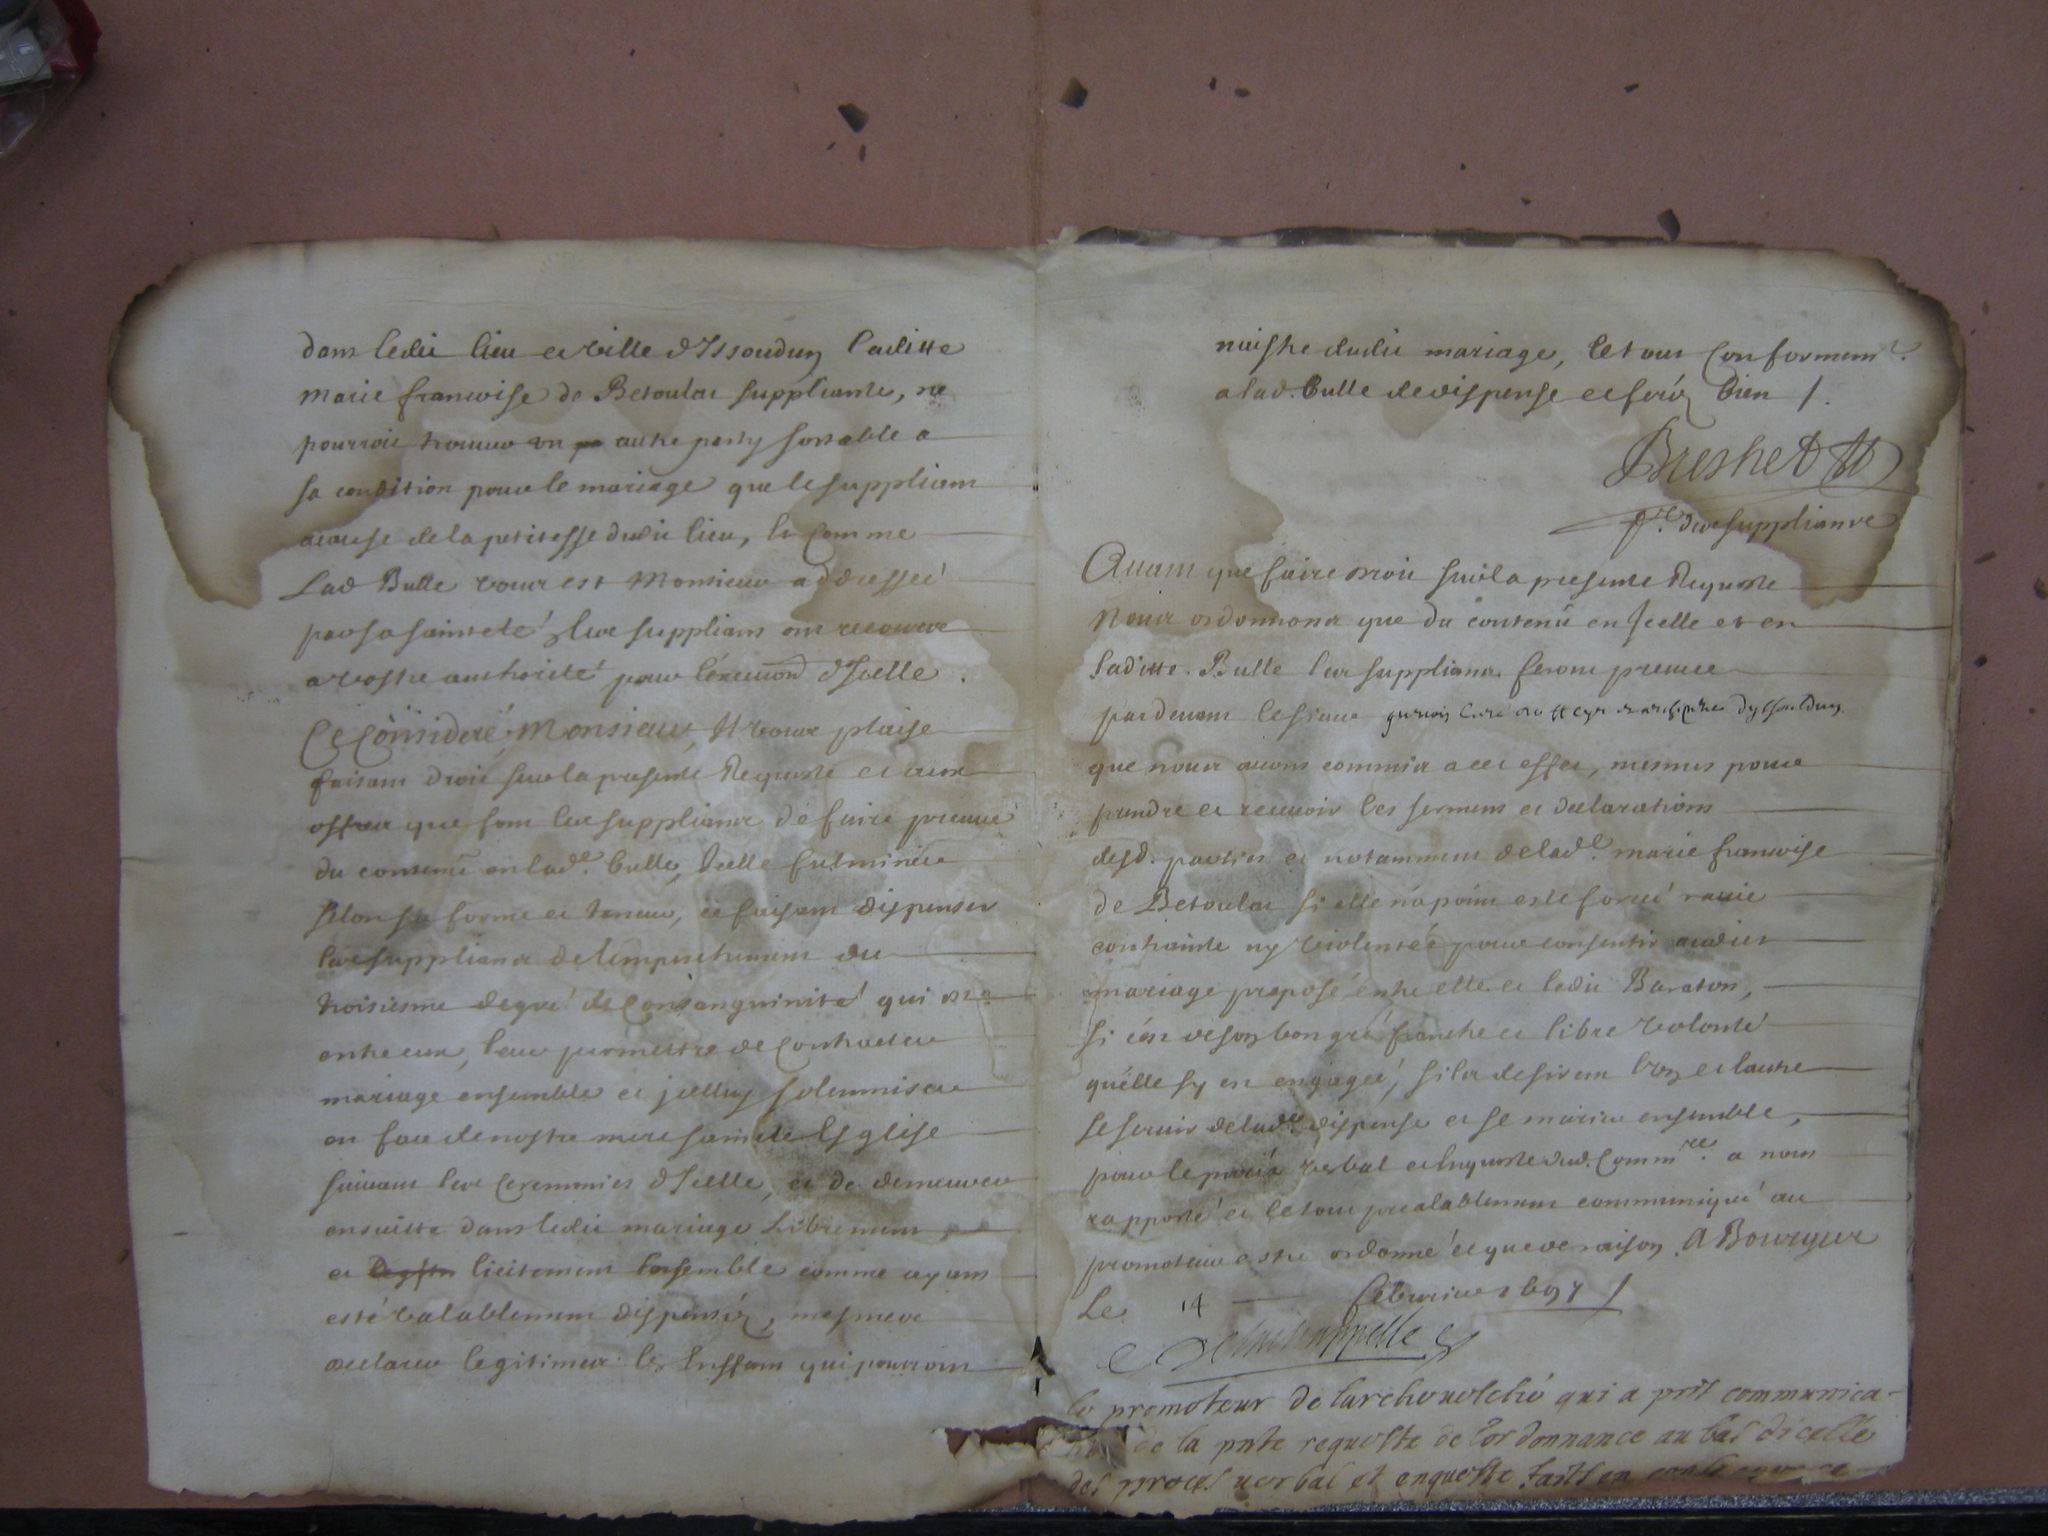 dans ledit lieu et ville d'Issoudun laditte
Marie francoise de Betoulat suppliante, ne
pourroit trouver un autre party sortable a
sa condition pour le mariage que le suppliant
acause de la petitesse dudit lieu, Et comme
Lad Bulle vous est Monsieur addressée
par sa sainteté, les suppliants ont recours
a vostre authorité pour l'éxecution d'Icelle.
Ce Considéré, Monsieur, Il vous plaise
faisant droit sur la presente Requeste et aux
offres que font les suppliants de faire preuve
du contenu en lad.e bulle, Icelle fulminer
selon sa forme et teneur, ce faisant dispenser
les suppliants de l'empeschement du
troisiesme degré de Consanguinité qui est
entre eux, leur permettre de Contracter
mariage ensemble et jcelluy solemniser
en face de nostre mere sainte Esglise
suivant les Ceremonies d'Icelle, et de demeurer
ensuitte dans ledit mariage Librement
et licitement Ensemble comme ayant
esté valablement dispensés, mesmes
declarer legitimes les Enffans qui pourront
naistre dudit mariage, le tout Conformem.t
a lad. bulle de dispense et ferez bien /.
Breshet
P.r des suppliants
Avant que faire droit sur la presente Requeste
Nous ordonnons que du contenu en Icelle et en
laditte Bulle les suppliants feront preuve
pardevant le sieur curé de St Cyr d'yssouldun
que nous avons commis a cet effet, mesmes pour
prendre et recevoir les serments et declarations
desd. parties et notamment de lad.e marie francoise
de Betoulat si elle n'a point esté forcée ravie
contrainte ny violentée pour consentir audit
mariage proposé entre elle et ledit Baraton,
si c'est de son bon gré franche et libre volonté
qu'elle s'y en engagée, s'ils desirent l'un et lautre
se servir de lad.e dispense et se marier ensemble,
pour le procés verbal et Enqueste dud. Comm.re a nous
rapporté et le tout prealablement communiqué au
promoteur estre ordonné ce que de raison. A Bourges
Le 14 febvrier
Delachappelle
le promoteur de larchevesché qui a prit communica-
tion de la pnte requeste de lordonnance au bas dicelle
des procés verbal et enqueste faits en consequence